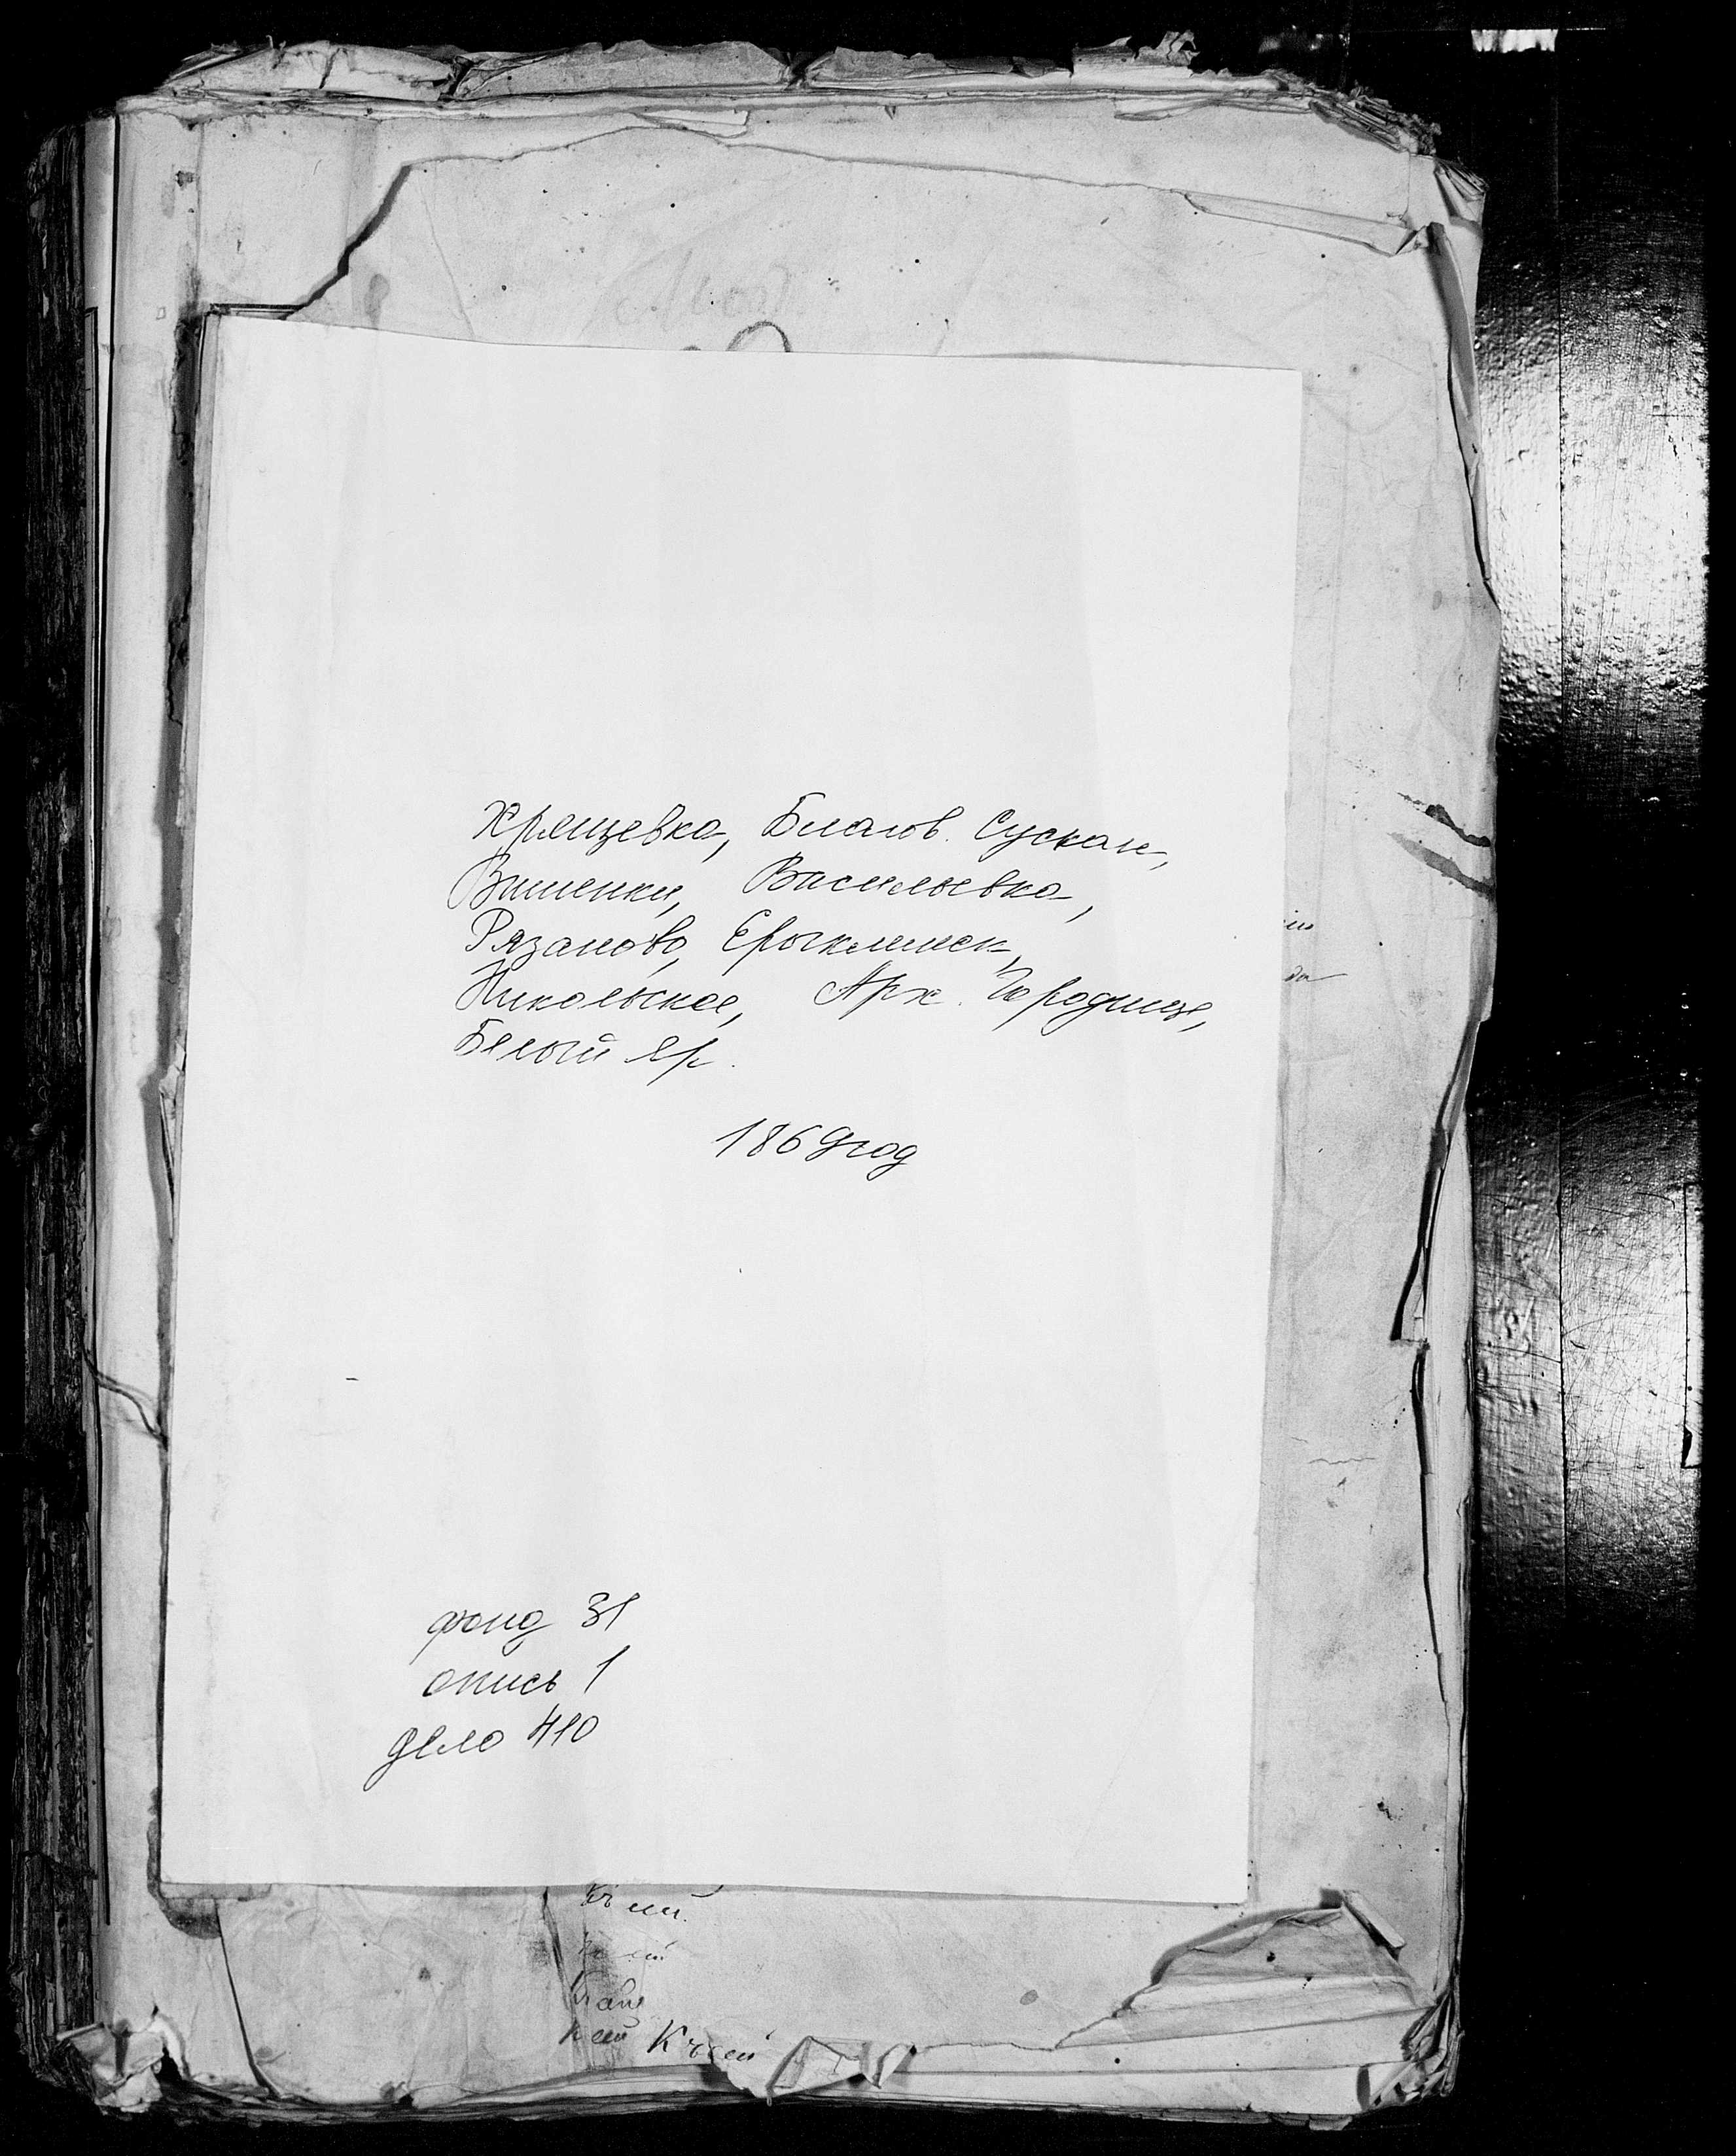 Хрящевка, Благов. Сускан,
Вишенки, Васильевка,
Рязаново, Ерыклинск,
Никольское, Арх. Городище,
Белый Яр.
1869 год
фонд 31
опись 1
дело 410